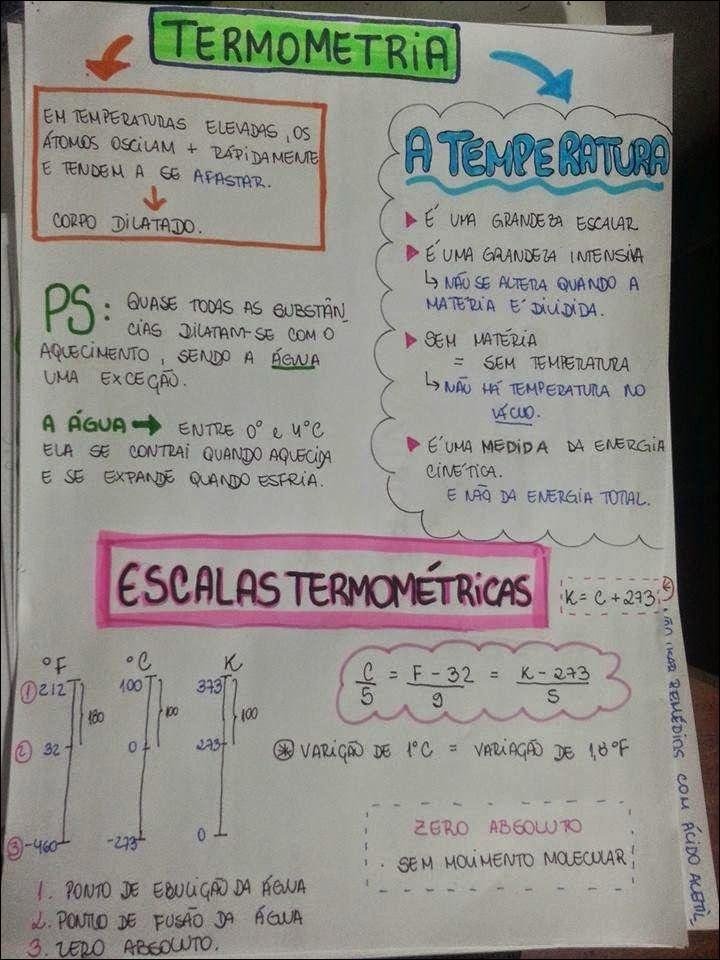 TERMOMETRIA
EM TEMPERATURAS ELEVADAS, OS
ÁTOMOS OSCILAM + RÁPIDAMENTE
E TENDEM A SE AFASTAR.
↓
CORPO DILATADO.
PS: QUASE TODAS AS SUBSTÂN_
CIAS DILATAM-SE COM O
AQUECIMENTO, SENDO A ÁGUA
UMA EXCEÇÃO.
A ÁGUA → ENTRE 0° e 4°C
ELA SE CONTRAI QUANDO AQUECIDA
E SE EXPANDE QUANDO ESFRIA.
A TEMPERATURA
É UMA GRANDEZA ESCALAR
É UMA GRANDEZA INTENSIVA
↳ NÃO SE ALTERA QUANDO A
MATÉRIA É DIVIDIDA.
SEM MATÉRIA
= SEM TEMPERATURA
↳ NÃO HÁ TEMPERATURA NO
VÁCUO.
É UMA MEDIDA DA ENERGIA
CINÉTICA.
E NÃO DA ENERGIA TOTAL.
ESCALAS TERMOMÉTRICAS
K = C + 273
°F °C K
1 212 180 100 100 373 100
2 32 0 273
3 -460 -273 0
C/5 = F - 32/9 = K - 273/5
* VARIÇÃO DE 1°C = VARIAÇÃO DE 1,8°F
ZERO ABSOLUTO
. SEM MOVIMENTO MOLECULAR
1. PONTO DE EBULIÇÃO DA ÁGUA
2. PONTO DE FUSÃO DA ÁGUA
3. ZERO ABSOLUTO.
REMÉDIOS COM ÁCIDO ACETIL_